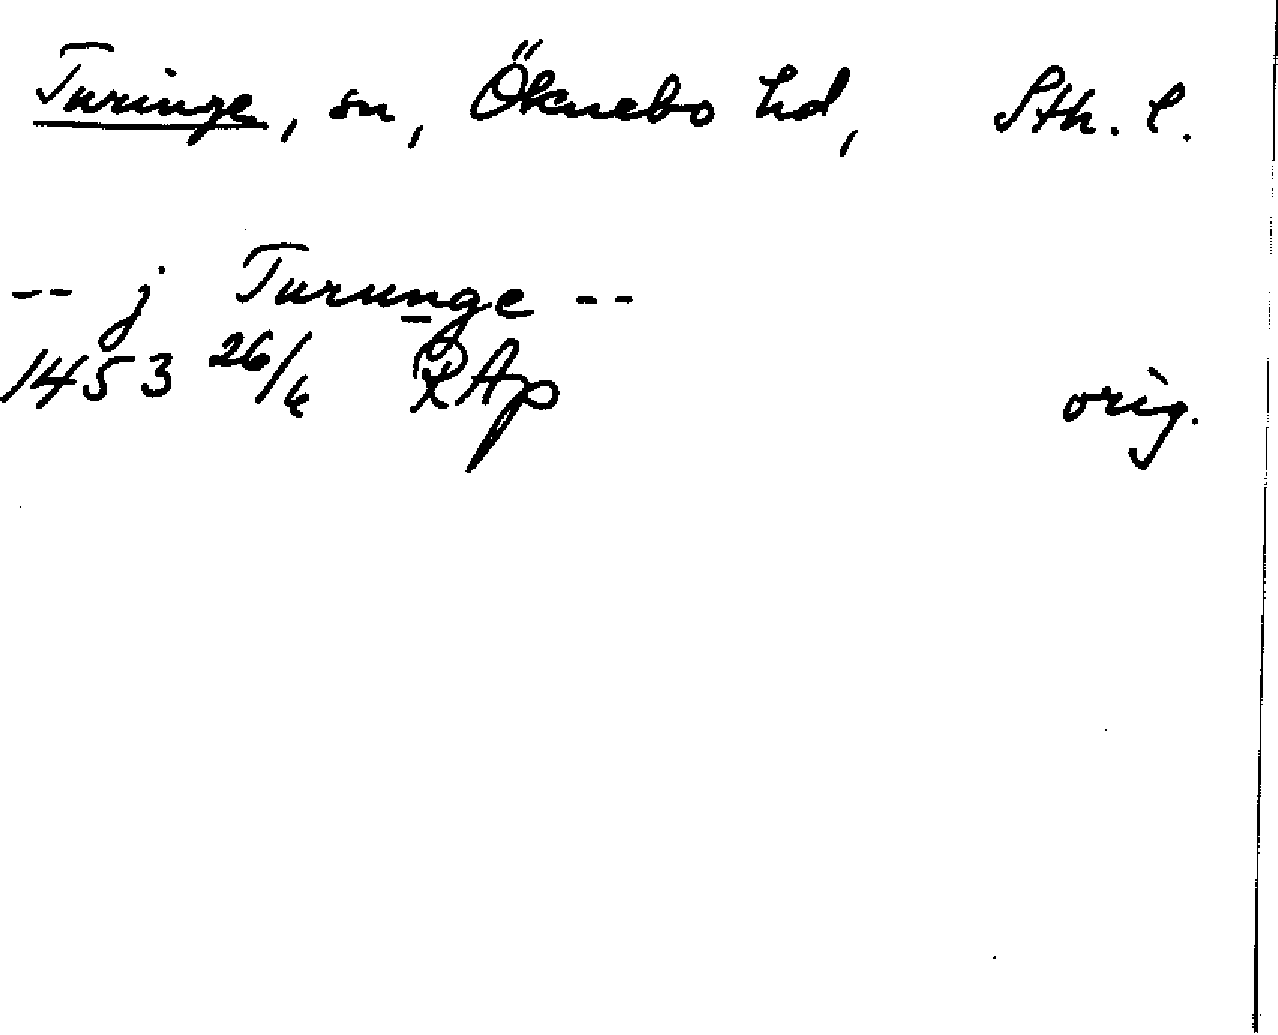 Turinge, sn, Öknebo hd, Sth. l.
-- j Turunge --
1453 26/6 RAp orig.